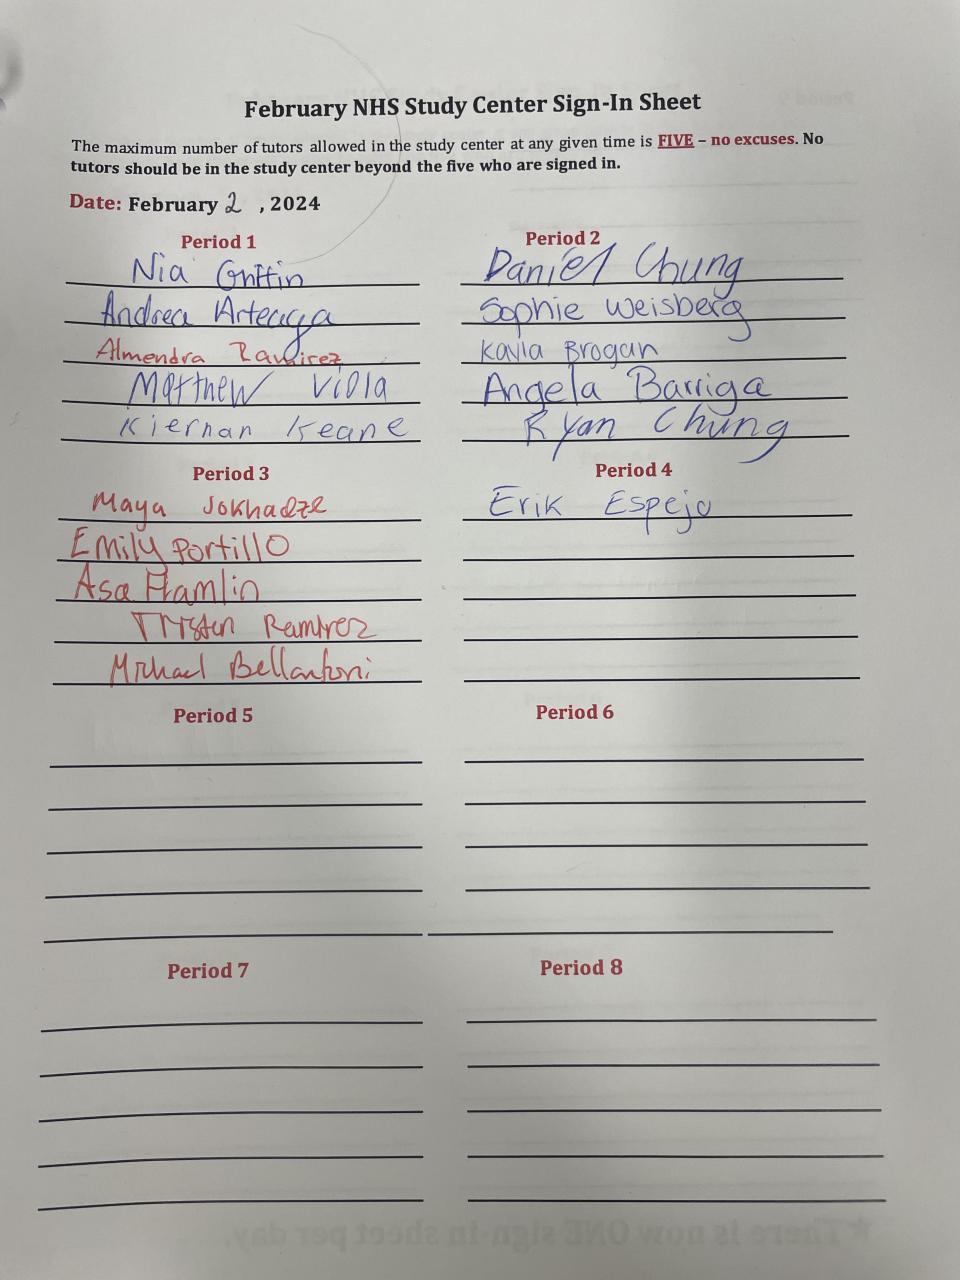 February NHS Study Center Sign-In Sheet
The maximum number of tutors allowed in the study center at any given time is FIVE – no excuses. No
tutors should be in the study center beyond the five who are signed in.
Date: February 2 , 2024
Period 1
Nia Griffin
Andrea Arteaga
Almendra Ramirez
Matthew Viola
Kiernan Keane
Period 2
Daniel Chung
Sophie Weisberg
Kayla Brogan
Angela Barriga
Ryan Chung
Period 3
Maya Jokhadze
Emily Portillo
Asa Hamlin
Trysten Ramirez
Michael Bellantoni
Period 4
Erik Espejo
Period 5
Period 6
Period 7
Period 8
★There is now ONE sign-in sheet per day.